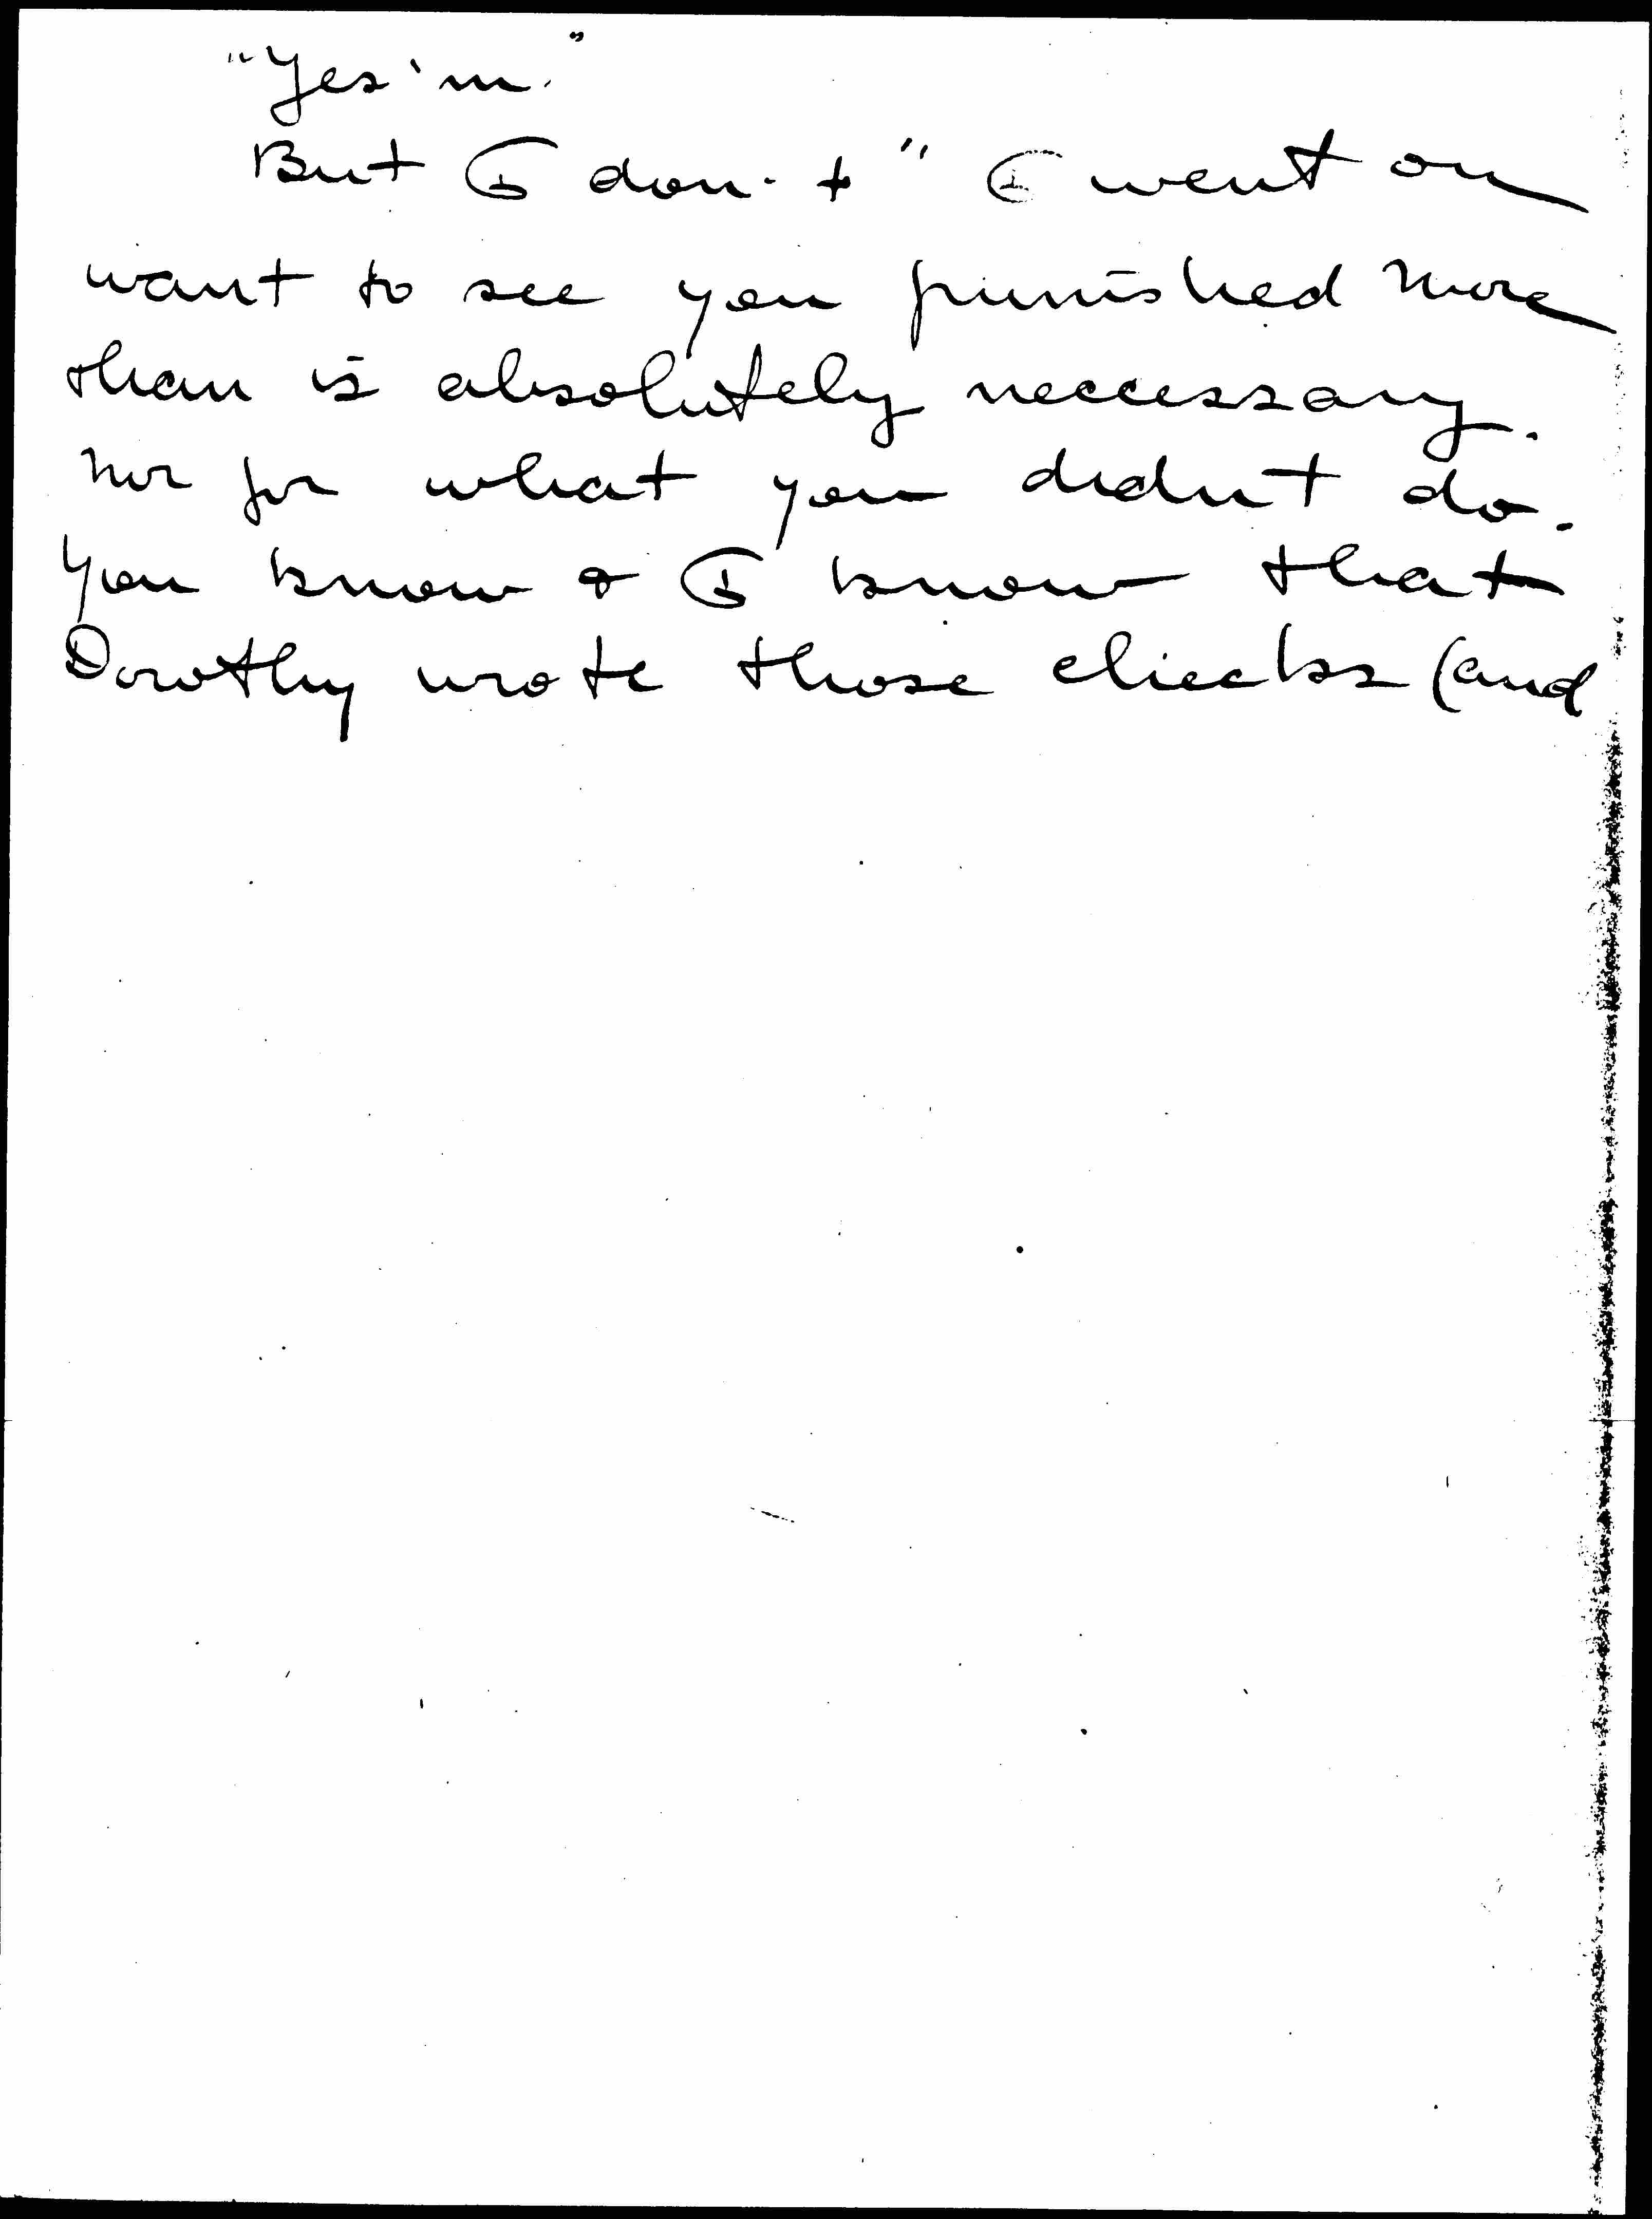 "Yes'm."
But I don't" I went on
want to see you punished more
than is absolutely neccessary.
nor for what you didn't do.
You know & I know that
Dorothy wrote those checks (and